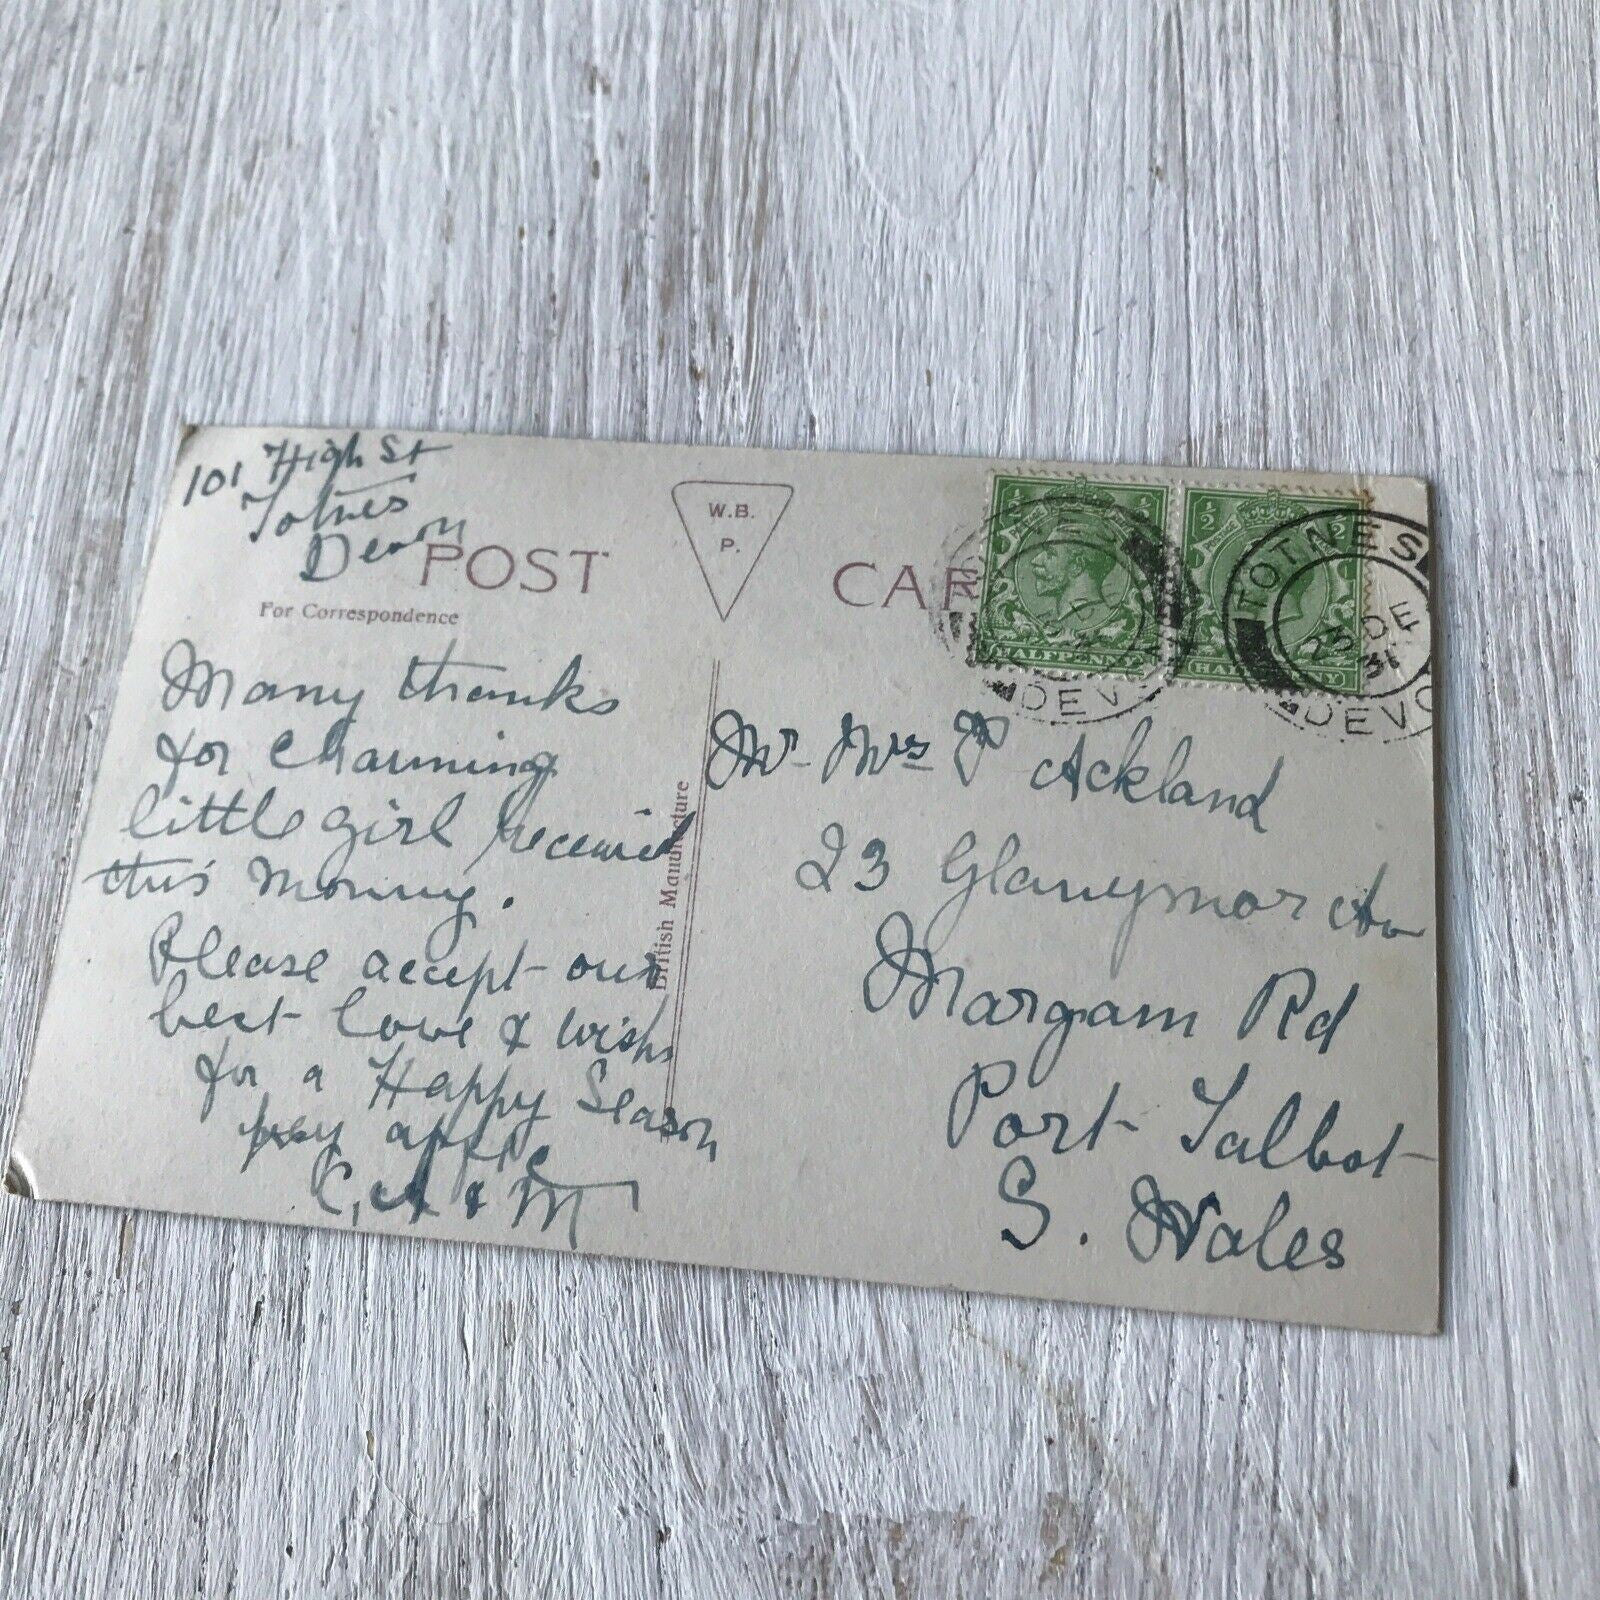 101 High St
Totnes
Devon
POST CAR
W.B.
P.
For Correspondence
Many thanks
for charming
little girl received
this morning.
Please accept our
best love & wishs
for a Happy Season
British Manufacture
½ ½
HALFPENNY
½ ½
HA NNY
DEV
TOTNES
DE
31
DEVO
Mr Mrs P Ackland
23 Glanymor Av
Margam Rd
Port Talbot
S. Wales